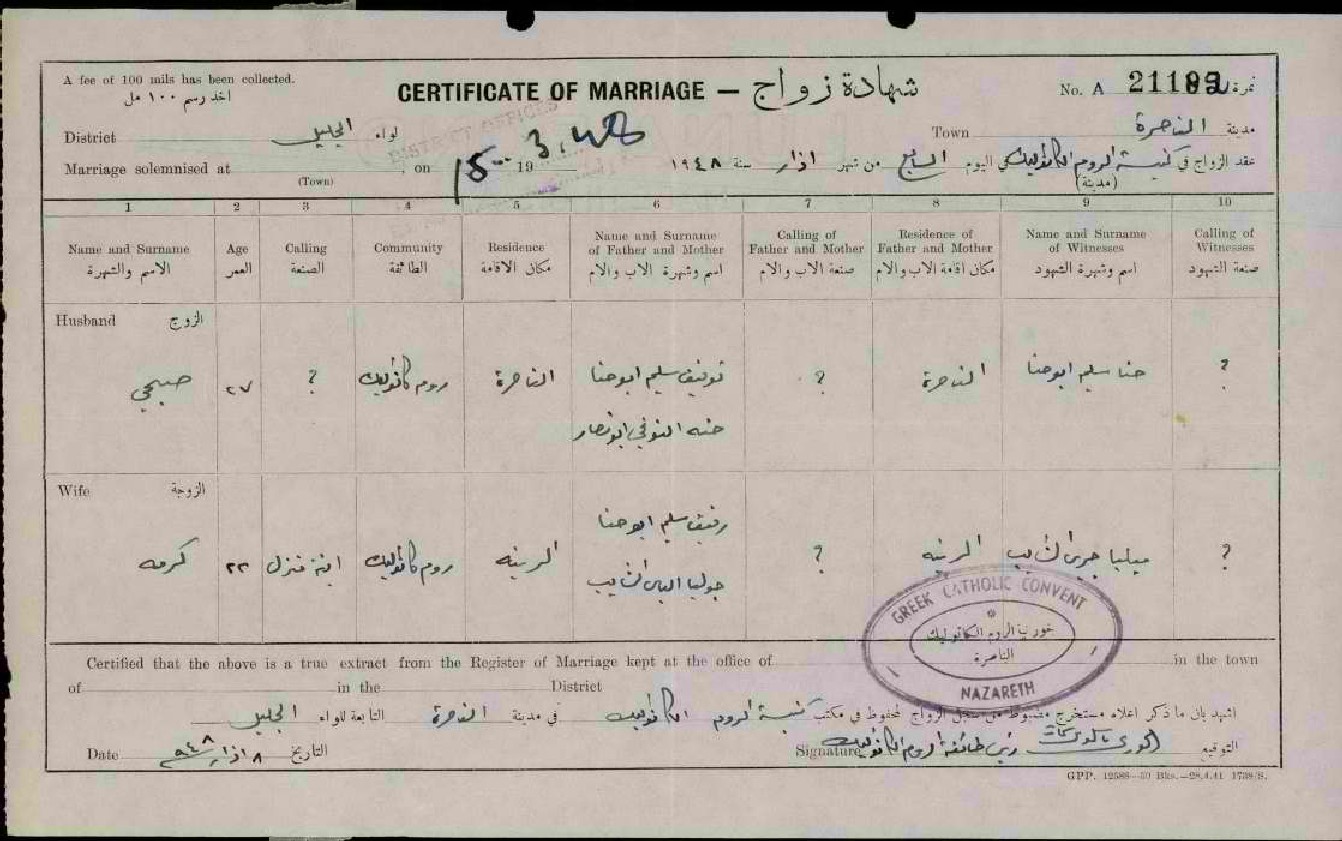 A fee of 100 mils has been collected.
اخذ رسم ١٠٠ مل
CERTIFICATE OF MARRIAGE — شهادة زواج
No. A 21183 نمرة
District لواء الجليل
Town مدينة الناصرة
Marriage solemnised at (Town), on 19
15 3.48
عقد الزواج في كنيسة الروم الكاثوليك (مدينة) في اليوم السابع من شهر اذار سنة ١٩٤٨
DISTRICT OFFICES
1 2 3 4 5 6 7 8 9 10
Name and Surname الاسم والشهرة
Age العمر
Calling الصنعة
Community الطائفة
Residence مكان الاقامة
Name and Surname of Father and Mother اسم وشهرة الاب والام
Calling of Father and Mother صنعة الاب والام
Residence of Father and Mother مكان اقامة الاب والام
Name and Surname of Witnesses اسم وشهرة الشهود
Calling of Witnesses صنعة الشهود
Husband الزوج
صبحي ٢٧ ? روم كاثوليك الناصرة توفيق سليم ابو حنا ? الناصرة حنا سليم ابو حنا ?
حنه ابو نصار
Wife الزوجة
كرمه ٢٢ ابنة منزل روم كاثوليك الرينه رفيق سليم ابو حنا ? الرينه ميليا الشايب ?
جوليا الياس الشايب
GREEK CATHOLIC CONVENT
خورنية الروم الكاثوليك
الناصرة
NAZARETH
Certified that the above is a true extract from the Register of Marriage kept at the office of in the town
of in the District
اشهد بان ما ذكر اعلاه مستخرج مضبوط من سجل الزواج المحفوظ في مكتب كنيسة الروم الكاثوليك في مدينة الناصرة التابعة للواء الجليل
Date ٨ اذار ٩٤٨ التاريخ
Signature الخوري رئيس طائفة الروم الكاثوليك التوقيع
GPP. 12588—50 Bks.—28.4.41 1738/S.